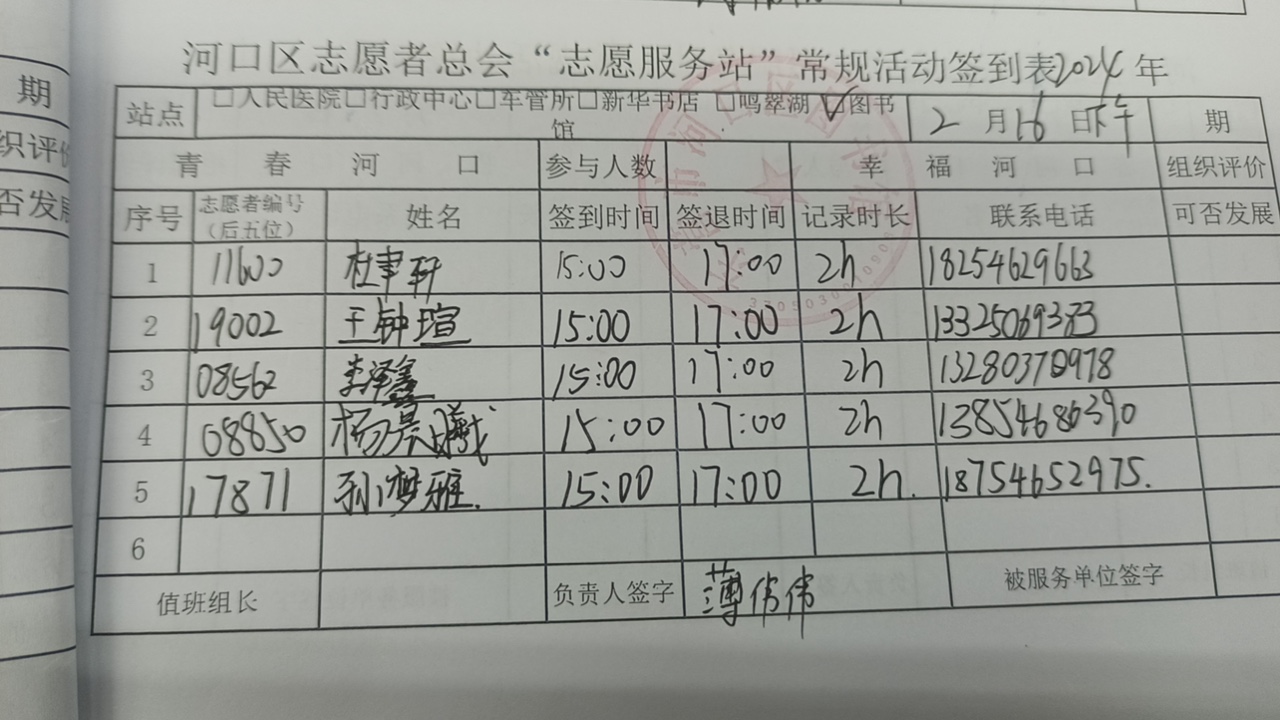 河口区志愿者总会“志愿服务站”常规活动签到表2024年
站点 □人民医院□行政中心□车管所□新华书店 □鸣翠湖 ☑图书馆 2月16日下午 期
青春河口 参与人数 幸福河口 组织评价
序号 志愿者编号(后五位) 姓名 签到时间 签退时间 记录时长 联系电话 可否发展
1 11600 15:00 17:00 2h 18254629663
2 19002 王钟瑄 15:00 17:00 2h 13325069383
3 08562 李泽鑫 15:00 17:00 2h 13280370978
4 08850 杨晨曦 15:00 17:00 2h 13854686390
5 17871 孙梦雅. 15:00 17:00 2h. 18754652975.
6
值班组长 负责人签字 薄伟伟 被服务单位签字
期
织评价
否发展